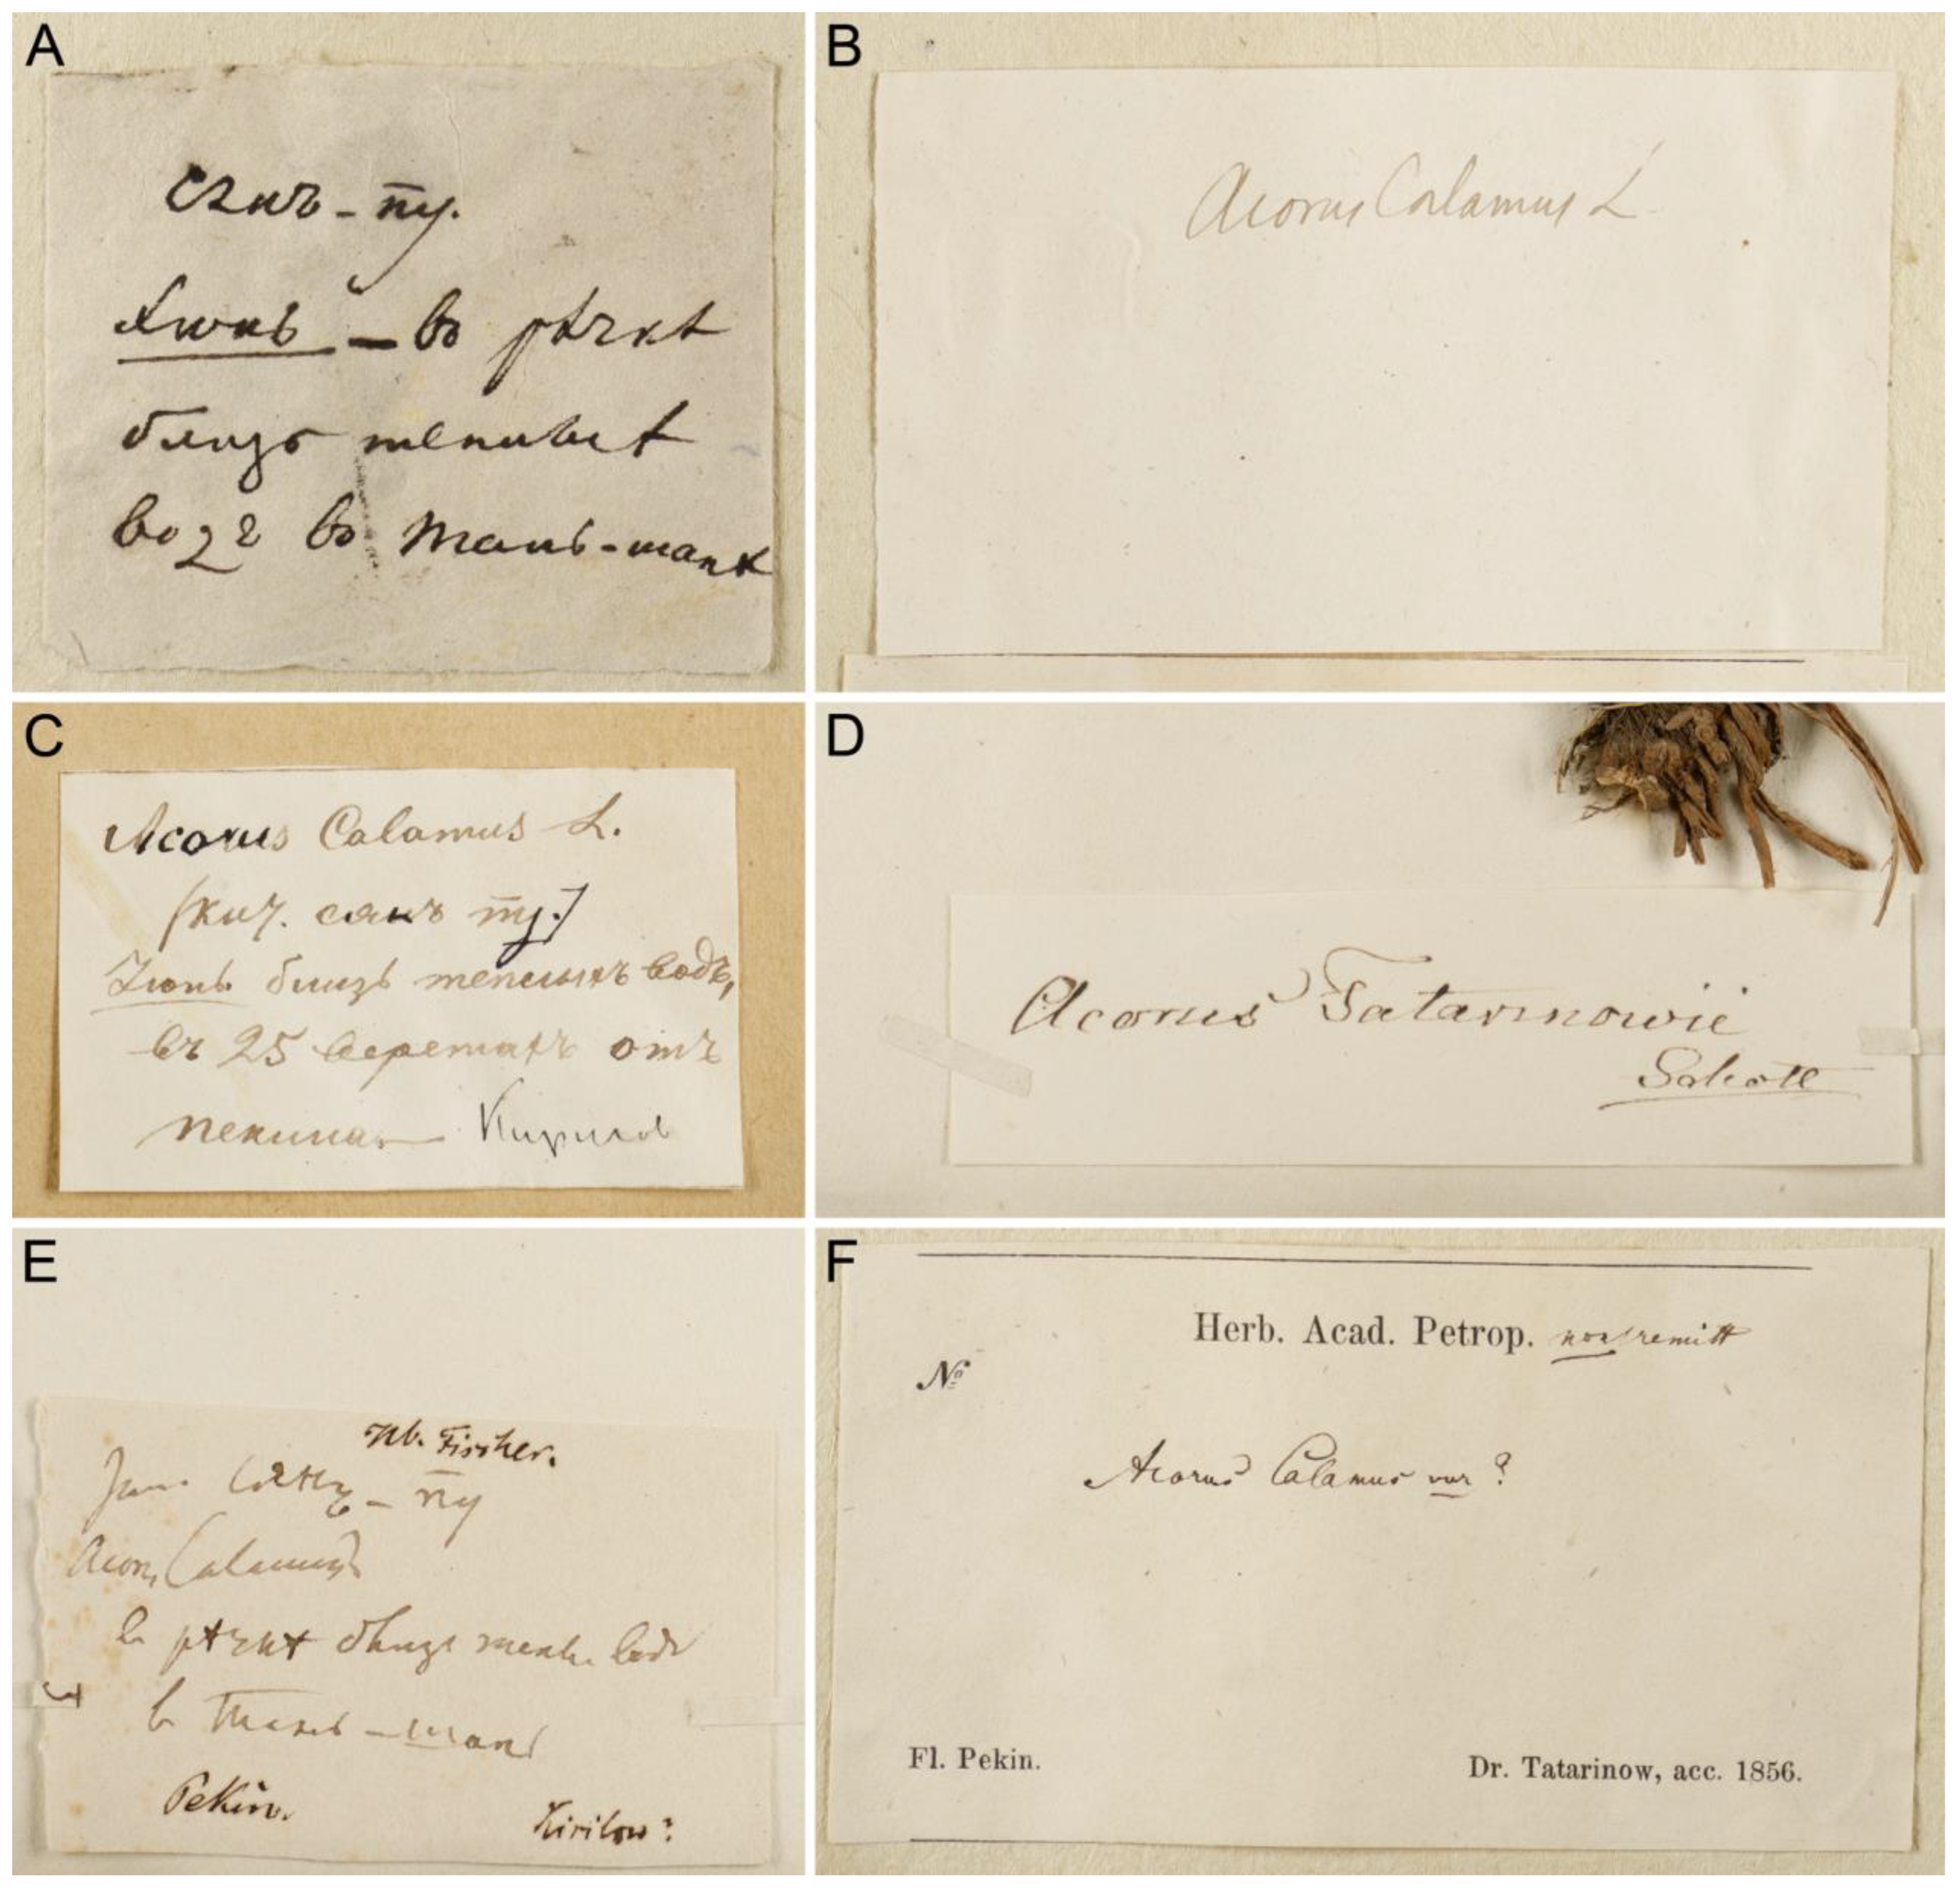 A
сянъ-пу.
Июнь - въ рѣчкѣ
близъ теплыхъ
водъ въ Танъ-шанѣ
B
Acorus Calamus L.
C
Acorus Calamus L.
[кит. сянъ пу.]
Июнь. близъ теплыхъ водъ,
въ 25 верстахъ отъ
Пекина. Кирилов
D
Acorus Tatarinowii
Schott
E
Hb. Fischer.
Jun. сянъ-пу
Acor. Calamus
въ рѣчкѣ близъ водъ
въ Танъ-шанѣ
Pekin.
Kirilow?
F
Herb. Acad. Petrop. non remitt
№
Acorus Calamus var?
Fl. Pekin.
Dr. Tatarinow, acc. 1856.